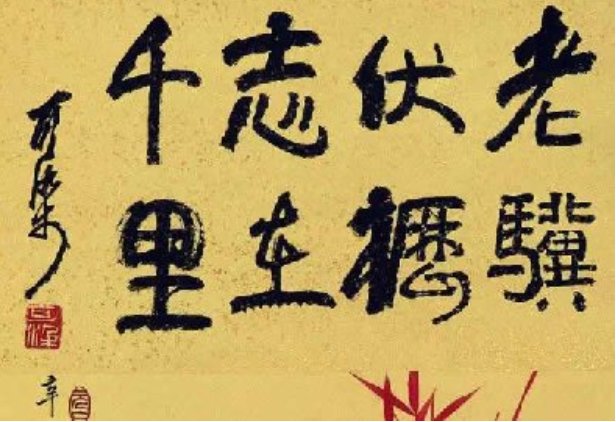 老骥
伏櫪
志在
千里
辛